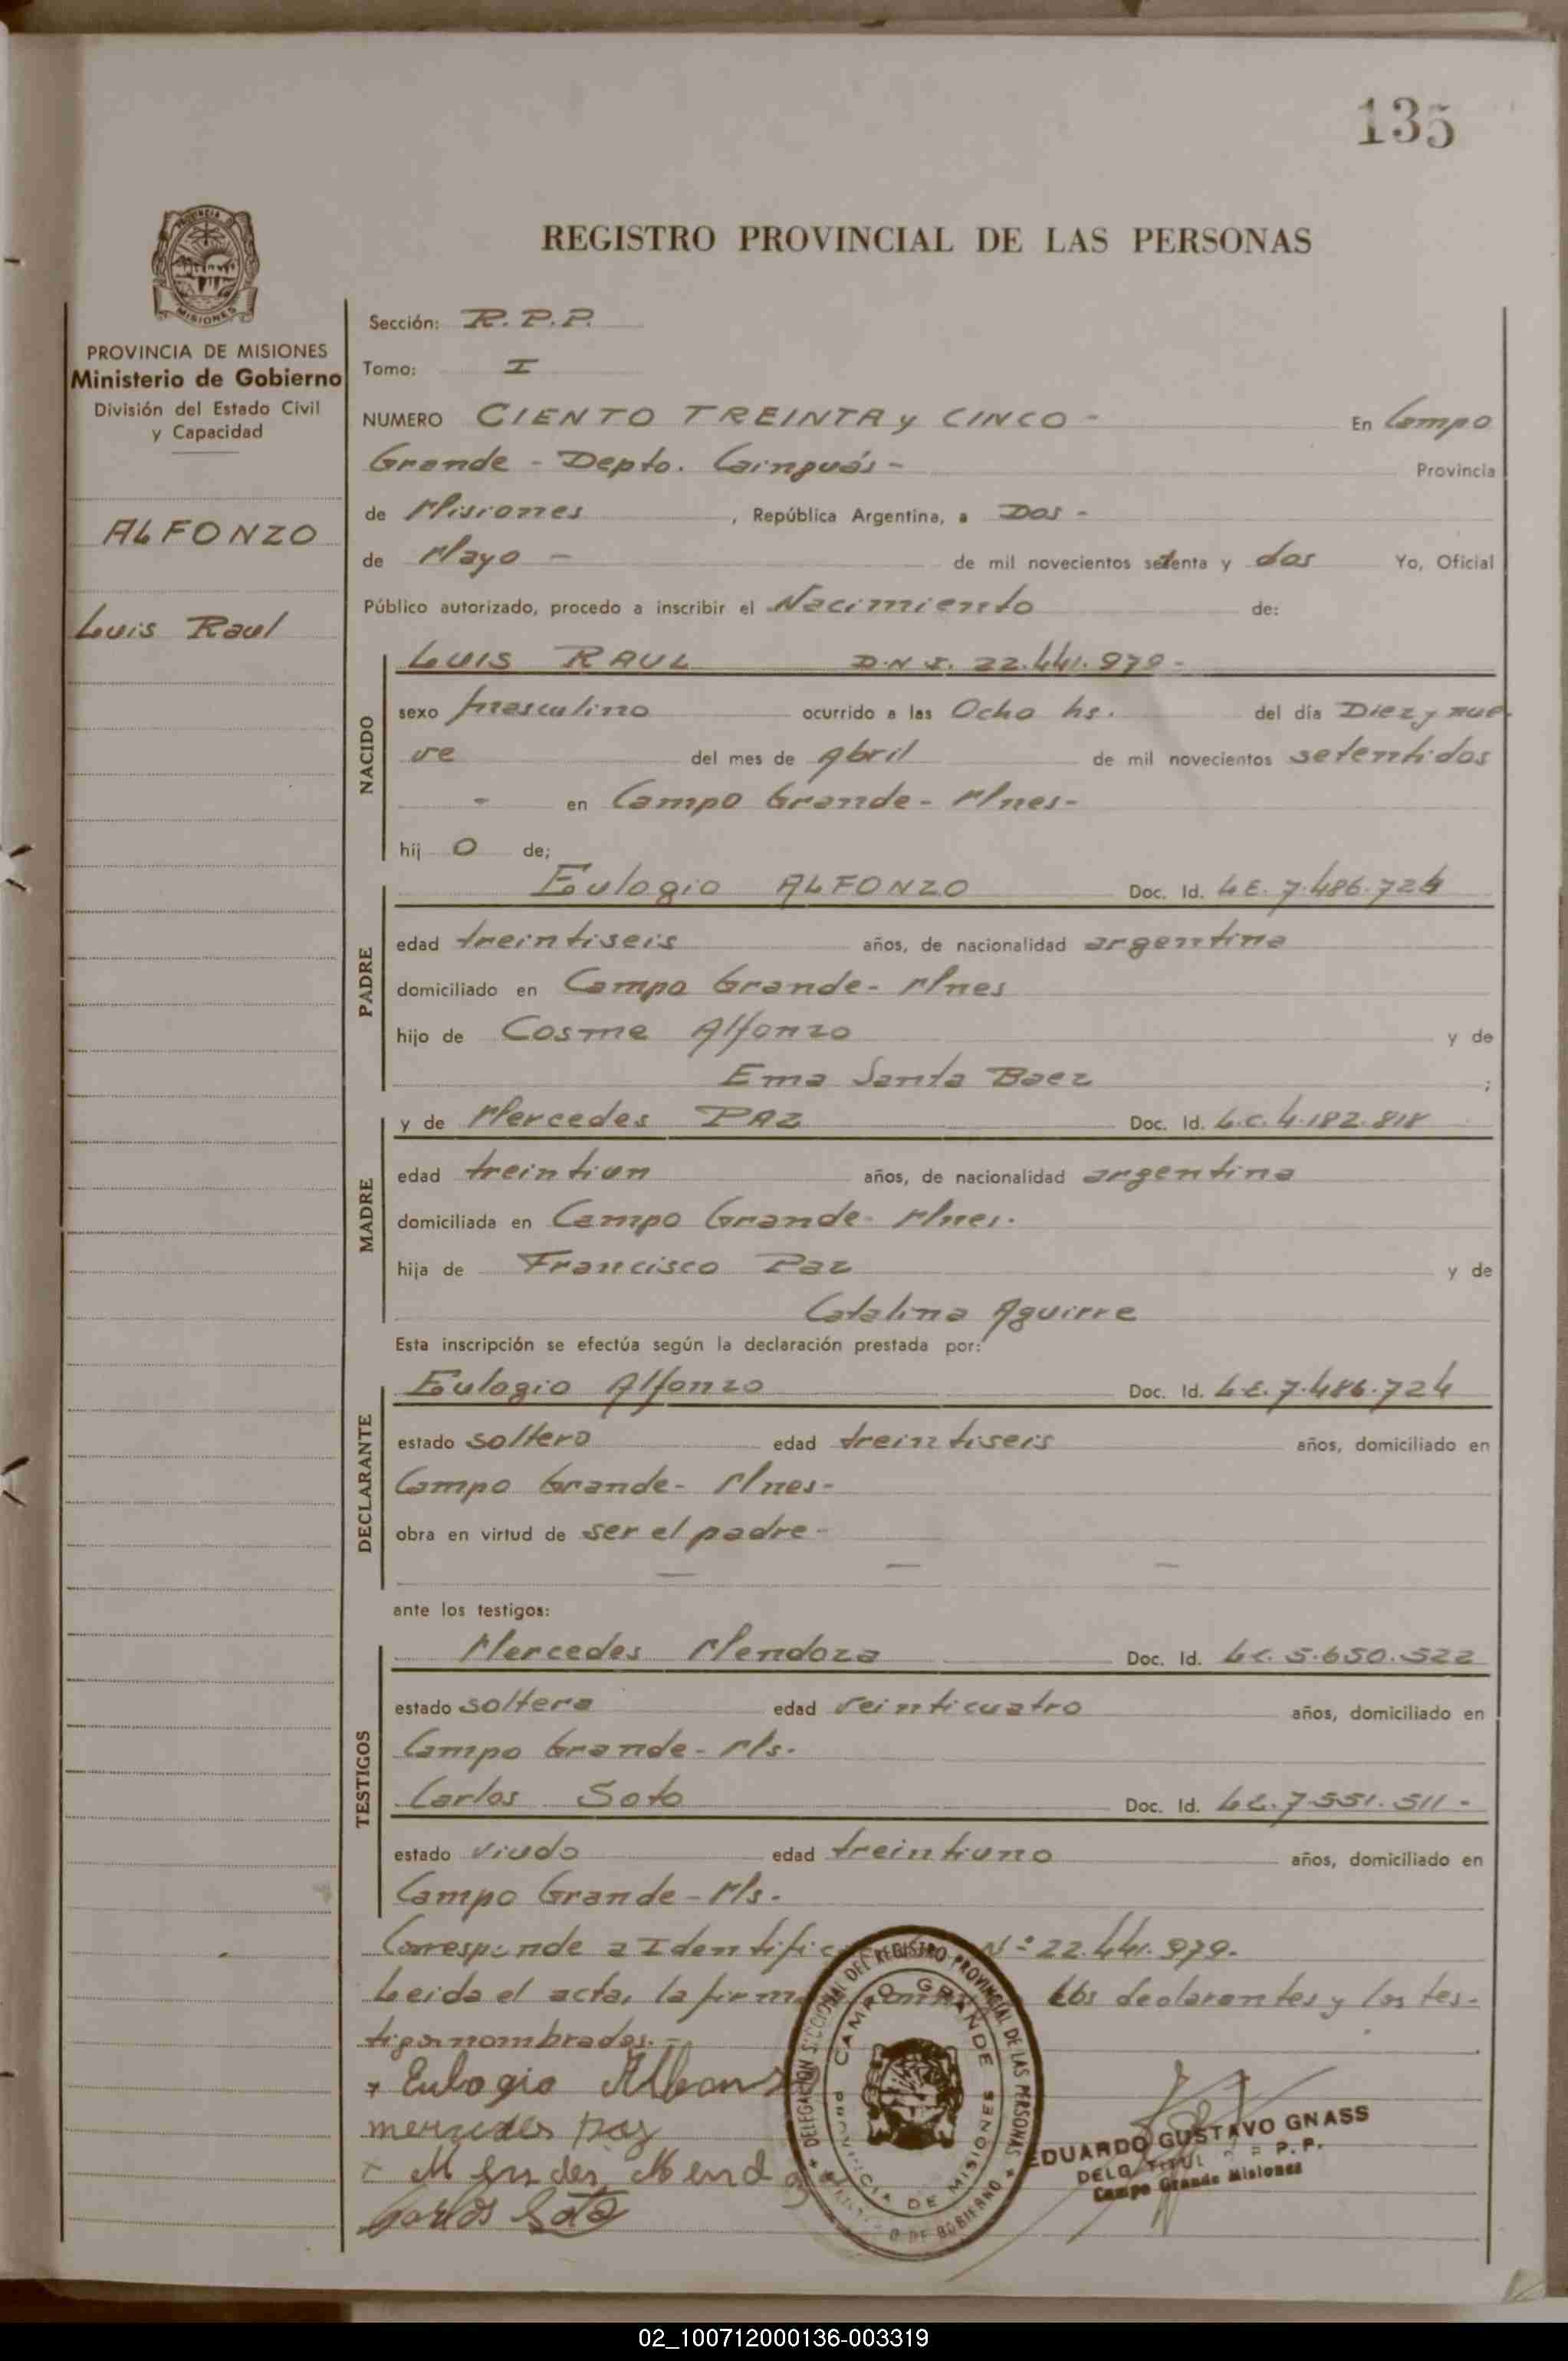 135
REGISTRO PROVINCIAL DE LAS PERSONAS
PROVINCIA
MISIONES
PROVINCIA DE MISIONES
Ministerio de Gobierno
División del Estado Civil
y Capacidad
ALFONZO
Luis Raul
Sección: R.P.P.
Tomo: I
NUMERO CIENTO TREINTA y CINCO - En Campo
Grande - Depto. Cainguás - Provincia
de Misiones, República Argentina, a Dos -
de Mayo - de mil novecientos setenta y dos Yo, Oficial
Público autorizado, procedo a inscribir el Nacimiento de:
NACIDO
LUIS RAUL D.N.I. 22.441.979-
sexo masculino ocurrido a las Ocho hs. del día Diez y nue-
ve del mes de Abril de mil novecientos setentidos
- en Campo Grande - Mnes-
hij o de;
PADRE
Eulogio ALFONZO Doc. Id. L.E. 7.486.724
edad treintiseis años, de nacionalidad argentina
domiciliado en Campo Grande - Mnes
hijo de Cosme Alfonzo y de
Ema Santa Baez ;
MADRE
y de Mercedes PAZ Doc. Id. L.C. 4.182.818
edad treintiun años, de nacionalidad argentina
domiciliada en Campo Grande - Mnes.
hija de Francisco Paz y de
Catalina Aguirre
Esta inscripción se efectúa según la declaración prestada por:
DECLARANTE
Eulogio Alfonzo Doc. Id. L.E. 7.486.724
estado soltero edad treintiseis años, domiciliado en
Campo Grande - Mnes-
obra en virtud de ser el padre-
ante los testigos:
TESTIGOS
Mercedes Mendoza Doc. Id. L.C. 5.650.522
estado soltera edad veinticuatro años, domiciliado en
Campo Grande - Ms.
Carlos Soto Doc. Id. L.E. 7.551.511-
estado viudo edad treintiuno años, domiciliado en
Campo Grande - Ms.
Corresponde a Nº 22.441.979.
Leida el acta, la los declarantes y los tes-
tigos nombrados.-
Eulogio
mercedes paz
Carlos Soto
DELEGACION SECCIONAL DEL REGISTRO PROVINCIAL DE LAS PERSONAS
CAMPO GRANDE
PROVINCIA DE MISIONES
DE GOBIERNO
EDUARDO GUSTAVO GNASS
P.P.
Campo Grande Misiones
02_100712000136-003319